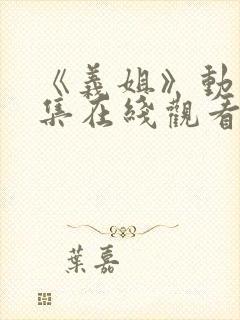 《義姐》動
集在綫觀看
葉嘉